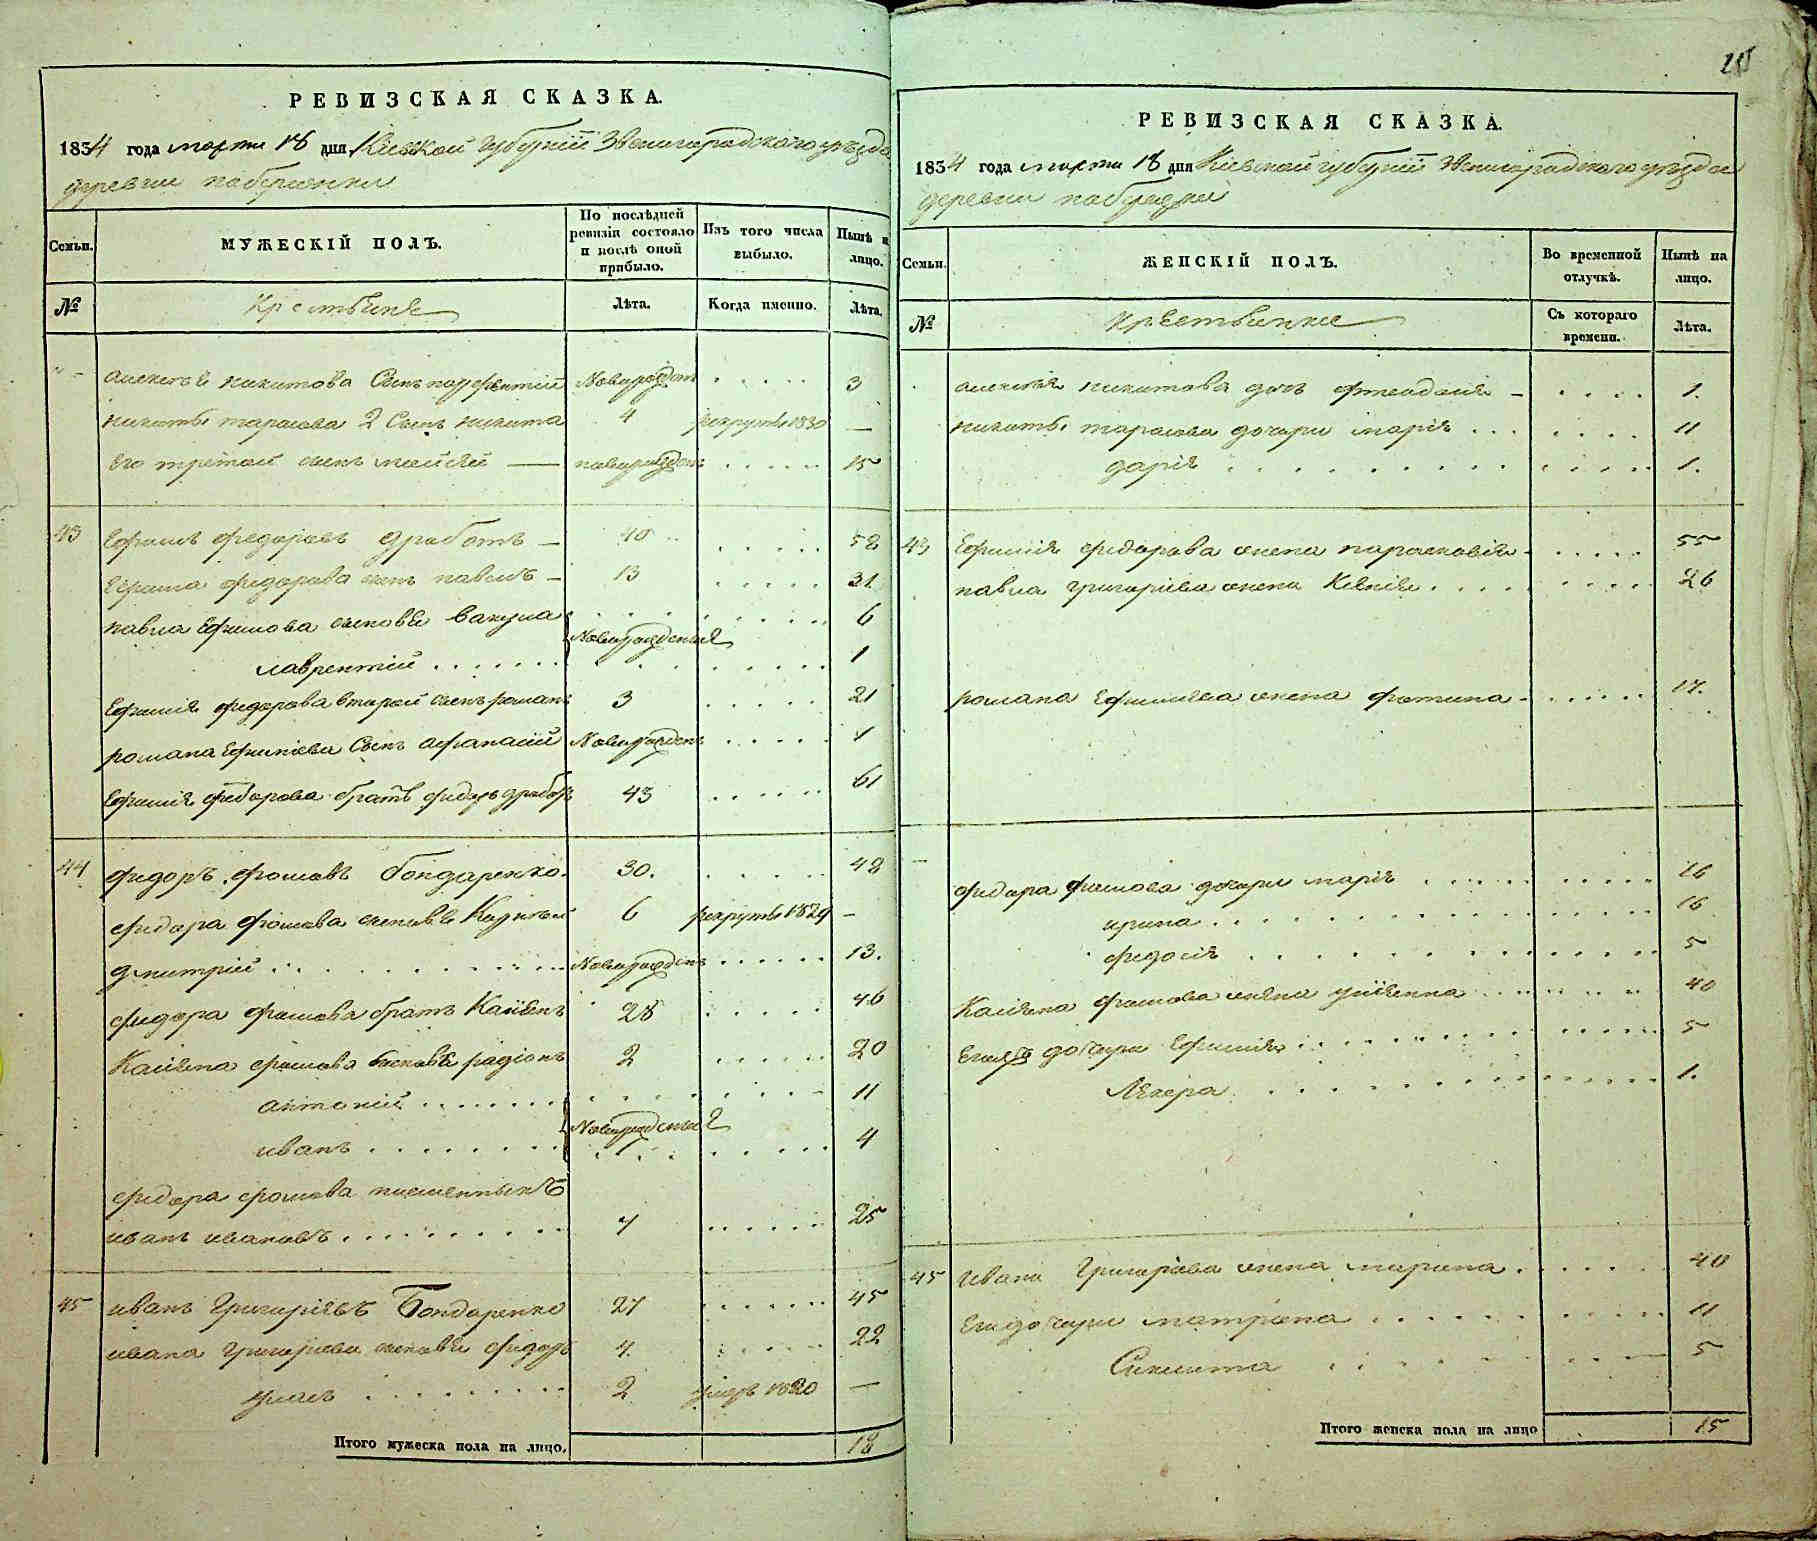 РЕВИЗСКАЯ СКАЗКА.
1834 года марта 18 дня Киевской губернии Звенигородского уезда
деревни
Семьи. МУЖЕСКІЙ ПОЛЪ. По послѣдней ревизіи состояло и послѣ оной прибыло. Изъ того числа выбыло. Нынѣ на лицо.
№ Крестьяне Лѣта. Когда именно. Лѣта.
Алексея Никитова Сынъ Новорожден 3
Никиты Тарасова 2 Сынъ Никита 4 рекруты 1830 —
Его третой сынъ Мойсей — новорожден 15
43 Ефимъ Федоровъ Дработъ — 40 58
Ефима Федорова сынъ Павелъ — 13 31
Павла Ефимова сыновья Вакула 6
Новорожденные
Лаврентий 1
Ефимія Федорова второй сынъ Романъ 3 21
Романа Ефимиева Сынъ Афанасий Новорожденъ 1
Ефимія Федорова братъ Федоръ 43 61
44 Федоръ Фомовъ Бондаренко. 30. 48
Федора Фомова сыновья 6 рекруты 1829 —
Дмитрий Новорожденъ 13.
Федора Фомова братъ Касіянъ 28 46
Касіяна Фомова сыновья Радіонъ 2 20
Антоній 11
Новорожденные
Иванъ 4
Федора Фомова племянникъ
Иванъ Ивановъ 7 25
45 Иванъ Григоріевъ Бондаренко 27 45
Ивана Григориева сыновья Федоръ 4. 22
2 умеръ 1820 —
Итого мужеска пола на лицо. 18
РЕВИЗСКАЯ СКАЗКА.
1834 года марта 18 дня Киевской губернии Звенигородского уезда
деревни
Семьи. ЖЕНСКІЙ ПОЛЪ. Во временной отлучкѣ. Нынѣ на лицо.
№ Крестьянки Съ котораго времени. Лѣта.
Алексея Никитова дочь 1.
Никиты Тарасова дочери Марія 11
Дарія 1.
43 Ефимія Федорова жена Парасковія 55
Павла Григоріева жена Ксенія 26
Романа Ефимиева жена Фотина 17.
Федора Фомова дочери Марія 16
Ирина 16
Федосія 5
Касіяна Фомова жена Уліянна 40
дочери Ефимія 5
1.
45 Ивана Григорієва жена Марина 40
Его дочери Матрона 11
5
Итого женска пола на лицо 15